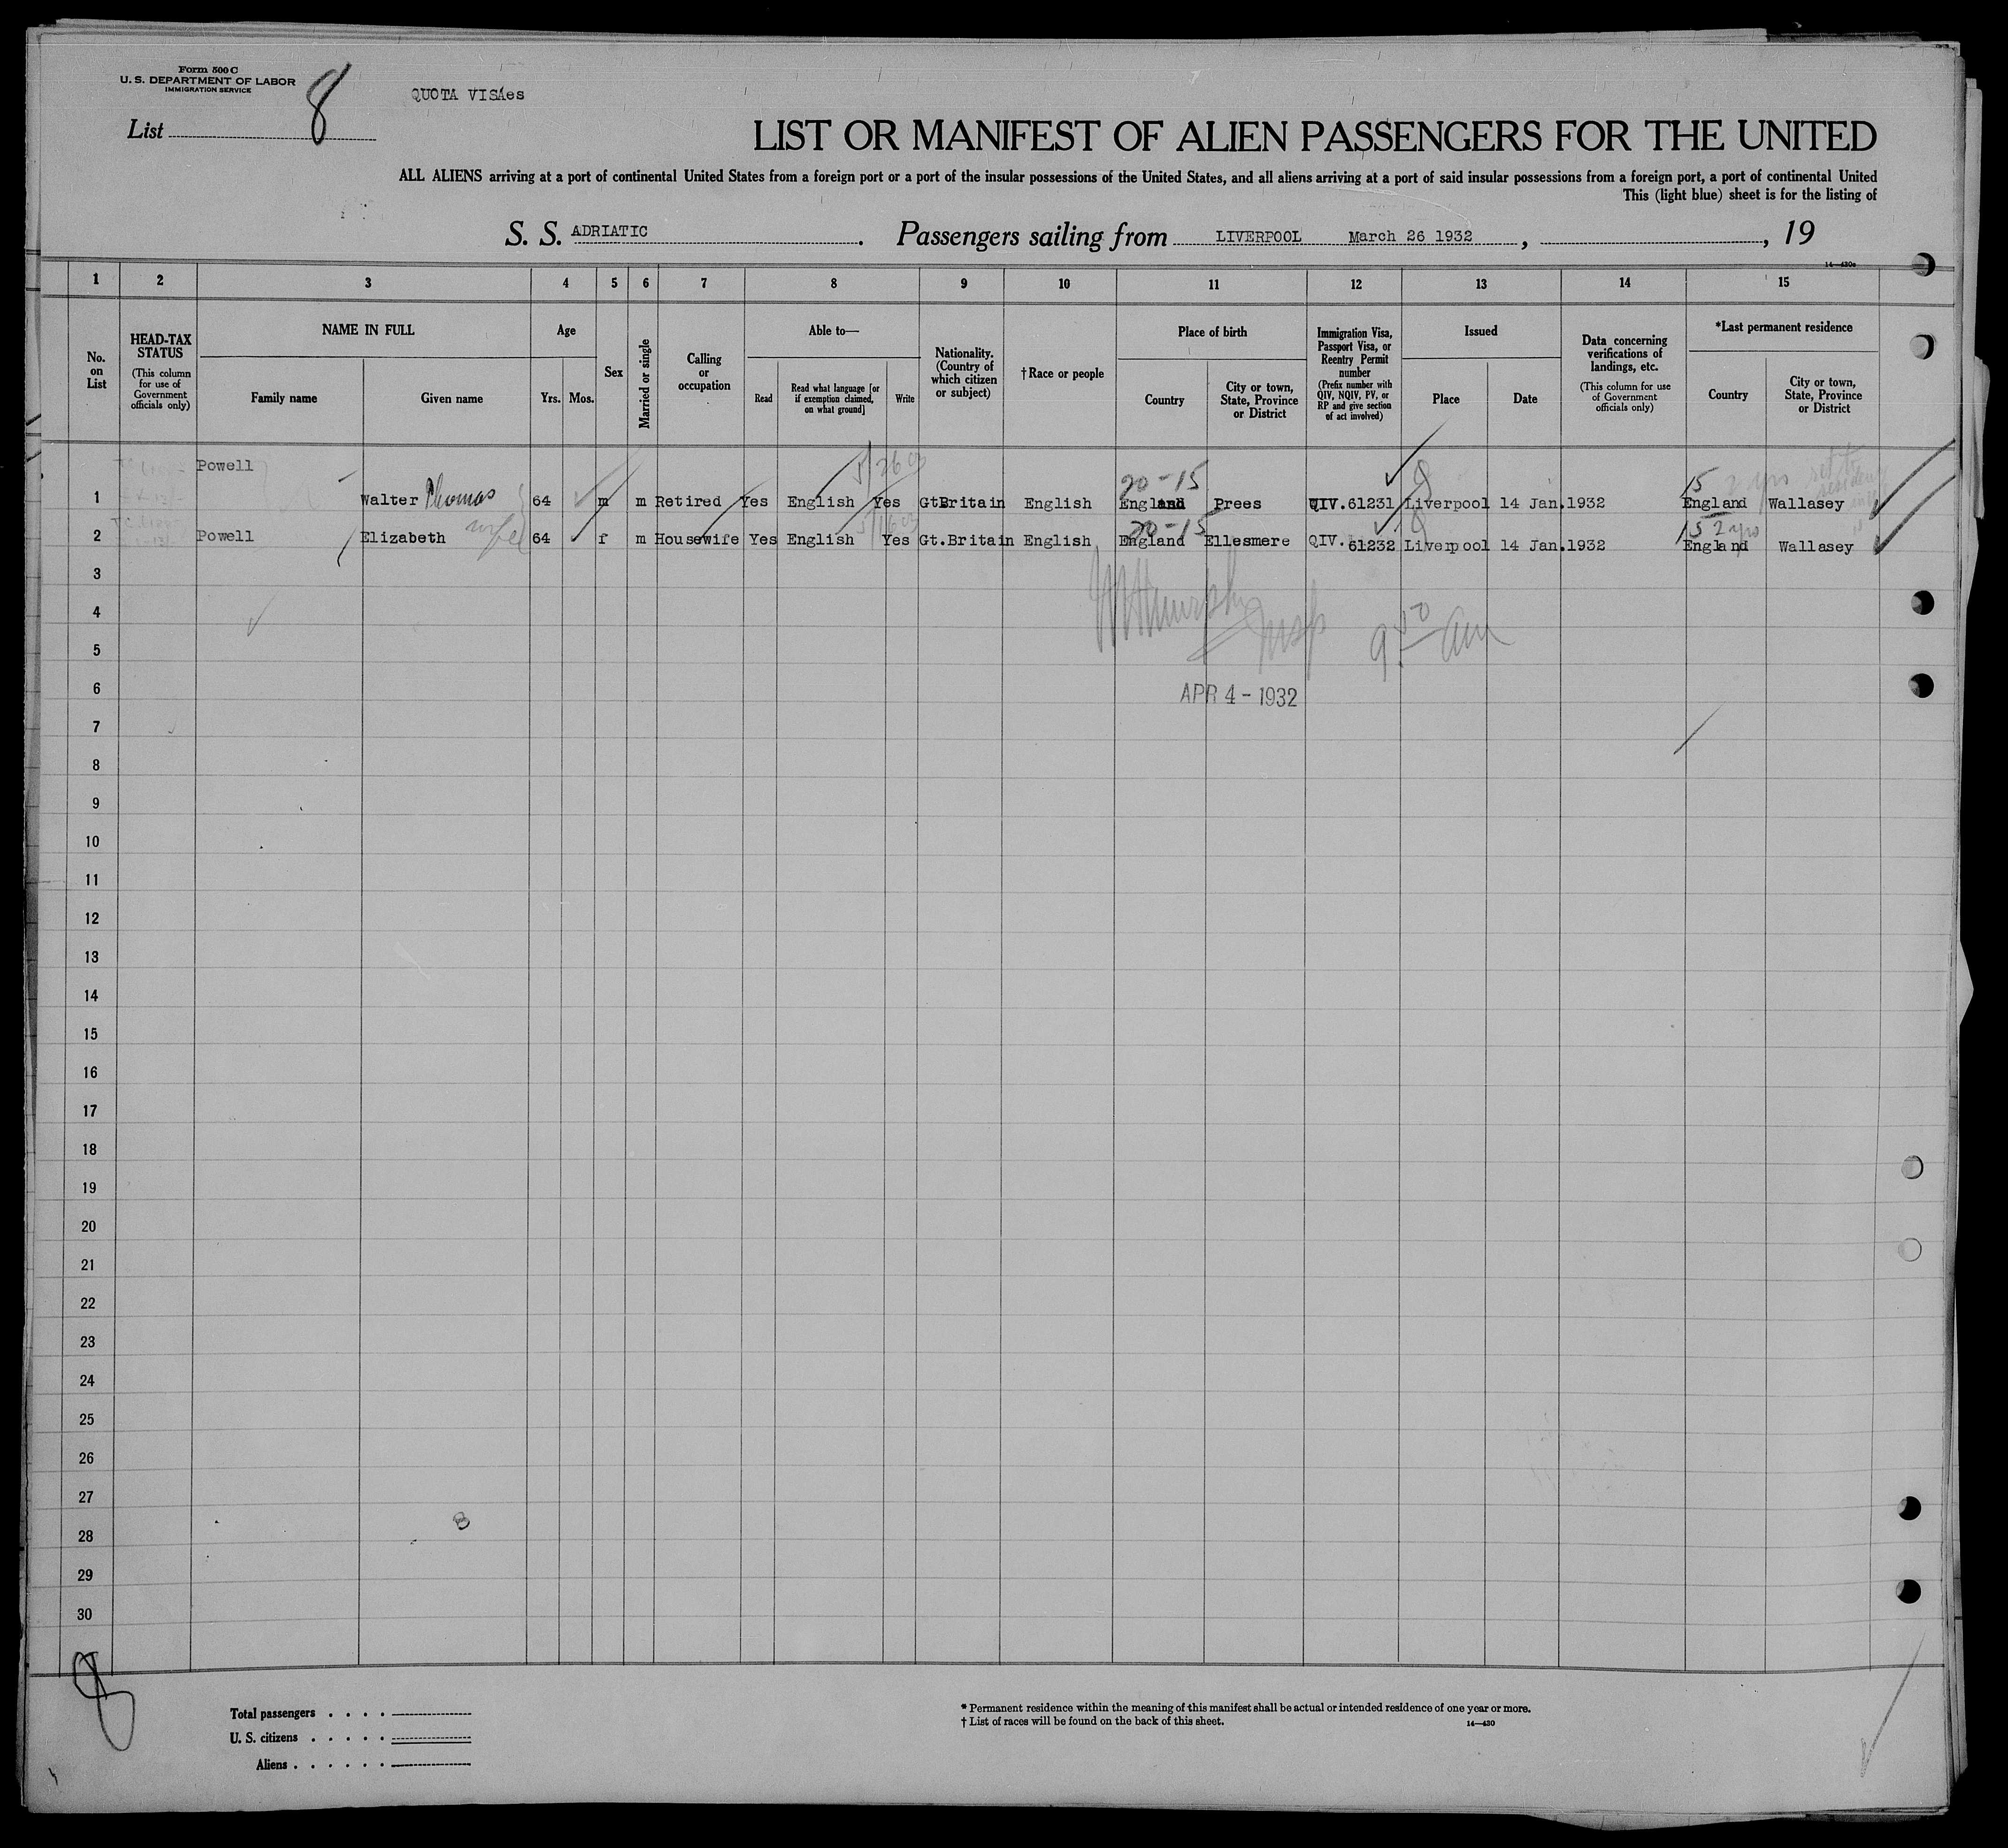 Form 500 C
U. S. DEPARTMENT OF LABOR
IMMIGRATION SERVICE
8
QUOTA VISAes
List
LIST OR MANIFEST OF ALIEN PASSENGERS FOR THE UNITED
ALL ALIENS arriving at a port of continental United States from a foreign port or a port of the insular possessions of the United States, and all aliens arriving at a port of said insular possessions from a foreign port, a port of continental United
This (light blue) sheet is for the listing of
S. S. ADRIATIC . Passengers sailing from LIVERPOOL March 26 1932 , , 19
14—430a
1 2 3 4 5 6 7 8 9 10 11 12 13 14 15
No. on List
HEAD-TAX STATUS
(This column for use of Government officials only)
NAME IN FULL
Family name
Given name
Age
Yrs. Mos.
Sex
Married or single
Calling or occupation
Able to—
Read
Read what language [or if exemption claimed, on what ground]
Write
Nationality. (Country of which citizen or subject)
†Race or people
Place of birth
Country
City or town, State, Province or District
Immigration Visa, Passport Visa, or Reentry Permit number
(Prefix number with QIV, NQIV, PV, or RP and give section of act involved)
Issued
Place
Date
Data concerning verifications of landings, etc.
(This column for use of Government officials only)
*Last permanent residence
Country
City or town, State, Province or District
20-15 15 2 yrs
1 Powell Walter Thomas 64 m m Retired Yes English Yes GtBritain English England Prees QIV.61231 Liverpool 14 Jan.1932 England Wallasey
20-15 15 2 yrs
2 Powell Elizabeth wife 64 f m Housewife Yes English Yes Gt.Britain English England Ellesmere QIV.61232 Liverpool 14 Jan.1932 England Wallasey
3
4
9.50 am
5
6 APR 4 - 1932
7
8
9
10
11
12
13
14
15
16
17
18
19
20
21
22
23
24
25
26
27
8
28
29
30
8
Total passengers . . . .
U. S. citizens . . . . .
Aliens . . . . . .
* Permanent residence within the meaning of this manifest shall be actual or intended residence of one year or more.
† List of races will be found on the back of this sheet.
14—430